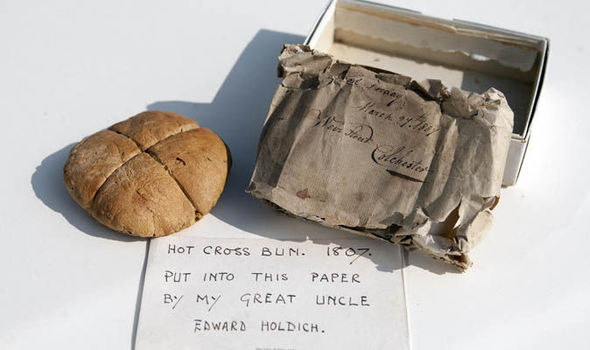 Good Friday
March 27th 1807
Colchester
HOT CROSS BUN. 1807.
PUT INTO THIS PAPER
BY MY GREAT UNCLE
EDWARD HOLDICH.